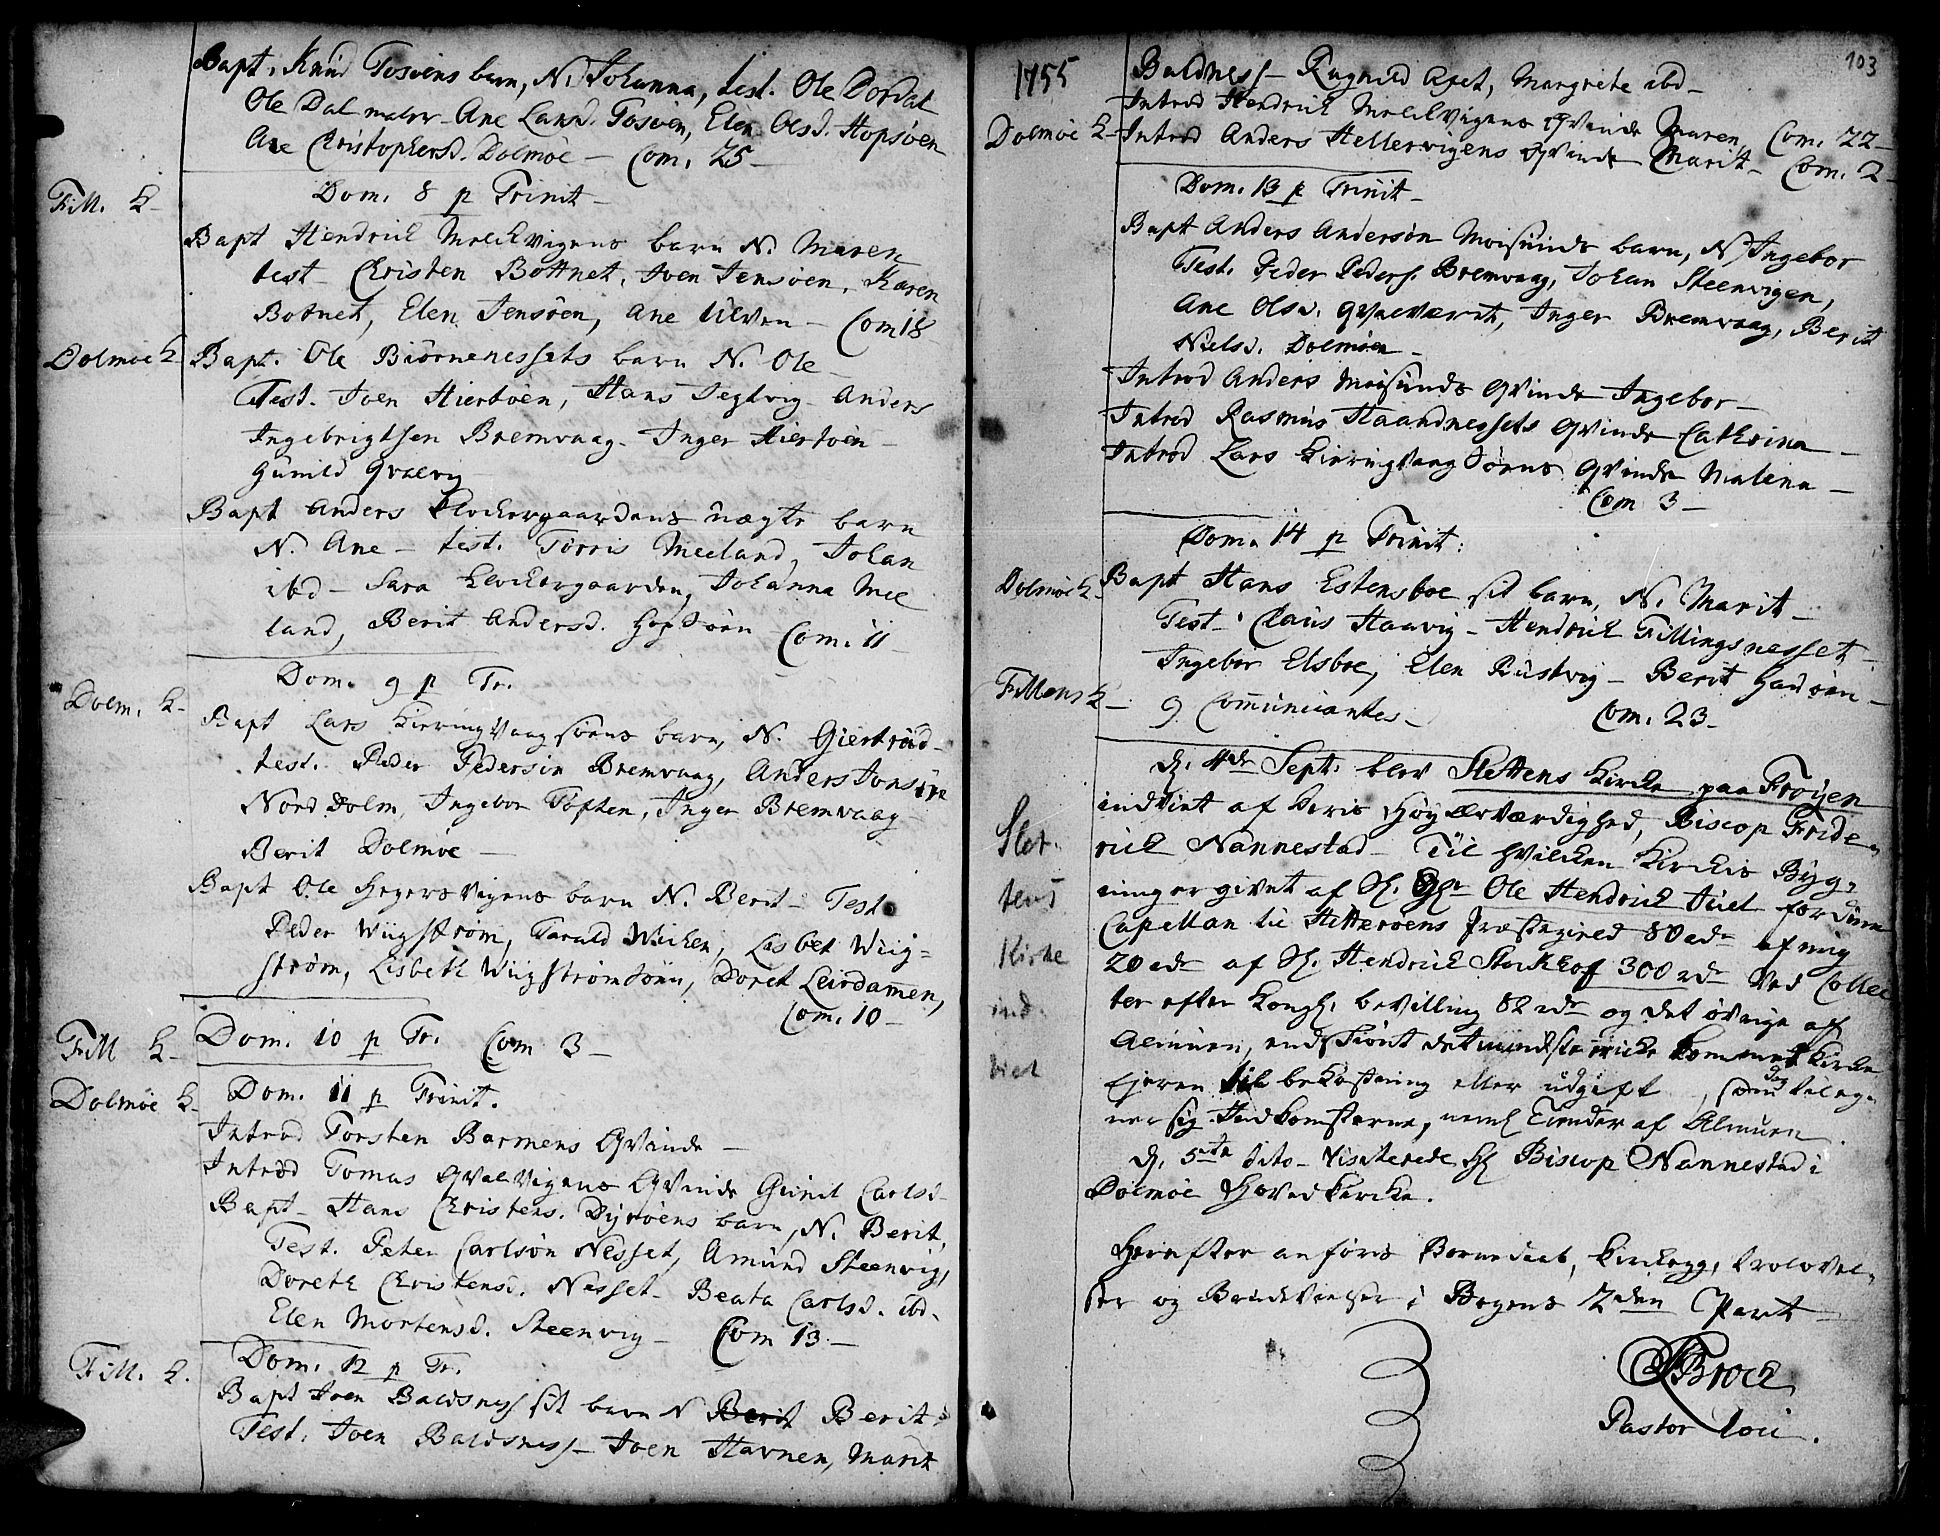 Bapt. Knud Tosøens barn, N. Johanna, test. Ole Dordal
Ole Dal Ane Lansd. Tosøen, Elen Olsd. Hopsøen
Ane Christophersd. Dolmøe – Com. 25 –
Fill. K –
Dom. 8 p Trinit –
Bapt Hendrich Melchvigens barn N. Maren
test – Christen Bottnet, Joen Jensøen, Karen
Botnet, Elen Jensøen, Ane Ulven – Com 18
Dolmøe K
Bapt. Ole Biørnenessets barn N. Ole –
Test. Joen Hiertøen, Hans Segtvig – Anders
Ingebrigtsen Bremvaag – Inger Hiertøen –
Gunild Qvalvig
Bapt Anders Klockergaardens uægte barn
N. Ane – test. Törris Meeland, Johan
ibd – Sara Klockergaarden, Johanna Mee
land, Berit Andersd. Hopsøen Com. 11
Dolm. K –
Dom. 9 p Tr.
Bapt Lars Kierringvaagsøens barn, N. Giertrud –
test. Peder Pedersøn Bremvaag, Anders Jonsøn
Nord Dolm, Ingebor Toften, Inger Bremvaag
Berit Dolmøe –
Bapt Ole Hegersvigens barn N. Berit – Test
Peder Wiigstrøm, Tarald Wichen, Lisbet Wiig=
strøm, Lisbeth Wiigstrømsøen, Doret Leirdammen,
Com. 10 –
Fill K –
Dom. 10 p Tr. Com 3 –
Dolmøe K –
Dom. 11 p Trinit.
Introd Torsten Barmens Qvinde –
Introd Tomas Qvalvigens Qvinde Gunil Carlsd –
Bapt – Hans Christens. Dyrøens barn, N. Berit,
Test. Peter Carlsøn Nesset, Amund Steenvig,
Doreth Christensd. Nesset – Beata Carlsd. ibd –
Elen Mortensd. Steenvig – Com 13 –
Fill. K.
Dom. 12 p Tr.
Bapt Joen Baldsness sit barn N Berit Berit
Test. Joen Baldsness – Joen Havnen, Marit
103
1755
Baldness – Ragnild Apet, Margrete ibd –
Introd Hendrich Melchvigens Qvinde Maren, Com. 22 –
Dolmøe K –
Introd Anders Hellervigens Qvinde Marit – Com. 2
Dom. 13 p Trinit –
Bapt Anders Andersøn Moisunds barn, N Ingebor
Test. Peder Peders. Bremvaag, Johan Steenvigen,
Ane Olsd. Qvalværet, Inger Bremvaag, Berit
Nielsd. Dolmøen –
Introd Anders Moisunds Qvinde Ingebor –
Introd Rasmus Haandnessets Qvinde Cathrina –
Introd Lars Kierringvaag søens Qvinde Malena –
Com 3 –
Dom. 14 p Trinit:
Dolmøe K –
Bapt Hans Estensboe sit barn, N. Marit –
Test – Claus Haavig – Hendrich Fillingsnesset –
Ingebor Elsboe, Elen Rustvig – Berit Gadsøen –
Fillens K –
9 Communicantes – Com. 23 –
D. 4de Sept. blev Slettens Kircke paa Frøyen
indviet af Hans Høy Ærværdighed, Biscop Fride
rich Nannestad – Til hvilchen Kirckes Byg=
ning er givet af Sl. Hr Ole Hendrich Juel fordum
Capellan til Hitterøens Præstegield 80 rdr af mig
20 rdr af Sl. Hendrich Storkhof 300 rdr Ved Collec
ter efter Kongl. bevilling 82 rdr og det øvrige af
Almuen, endskiønt det mindste icke kommer Kircke
Ejeren til bekostning eller udgift, som dog tileg=
ner sig Indkomsterne, neml Tiender af Almuen.
Slet=
tens
Kirke
ind=
viet
D. 5te dito – Visiterede Hr Biscop Nannestad i
Dolmøe Hoved Kircke.
Herefter anføris Barnedaab, Kirckegg, trolovel=
ser og Brudevielser i Bogens 2den Part –
Brock
Pastor loci.